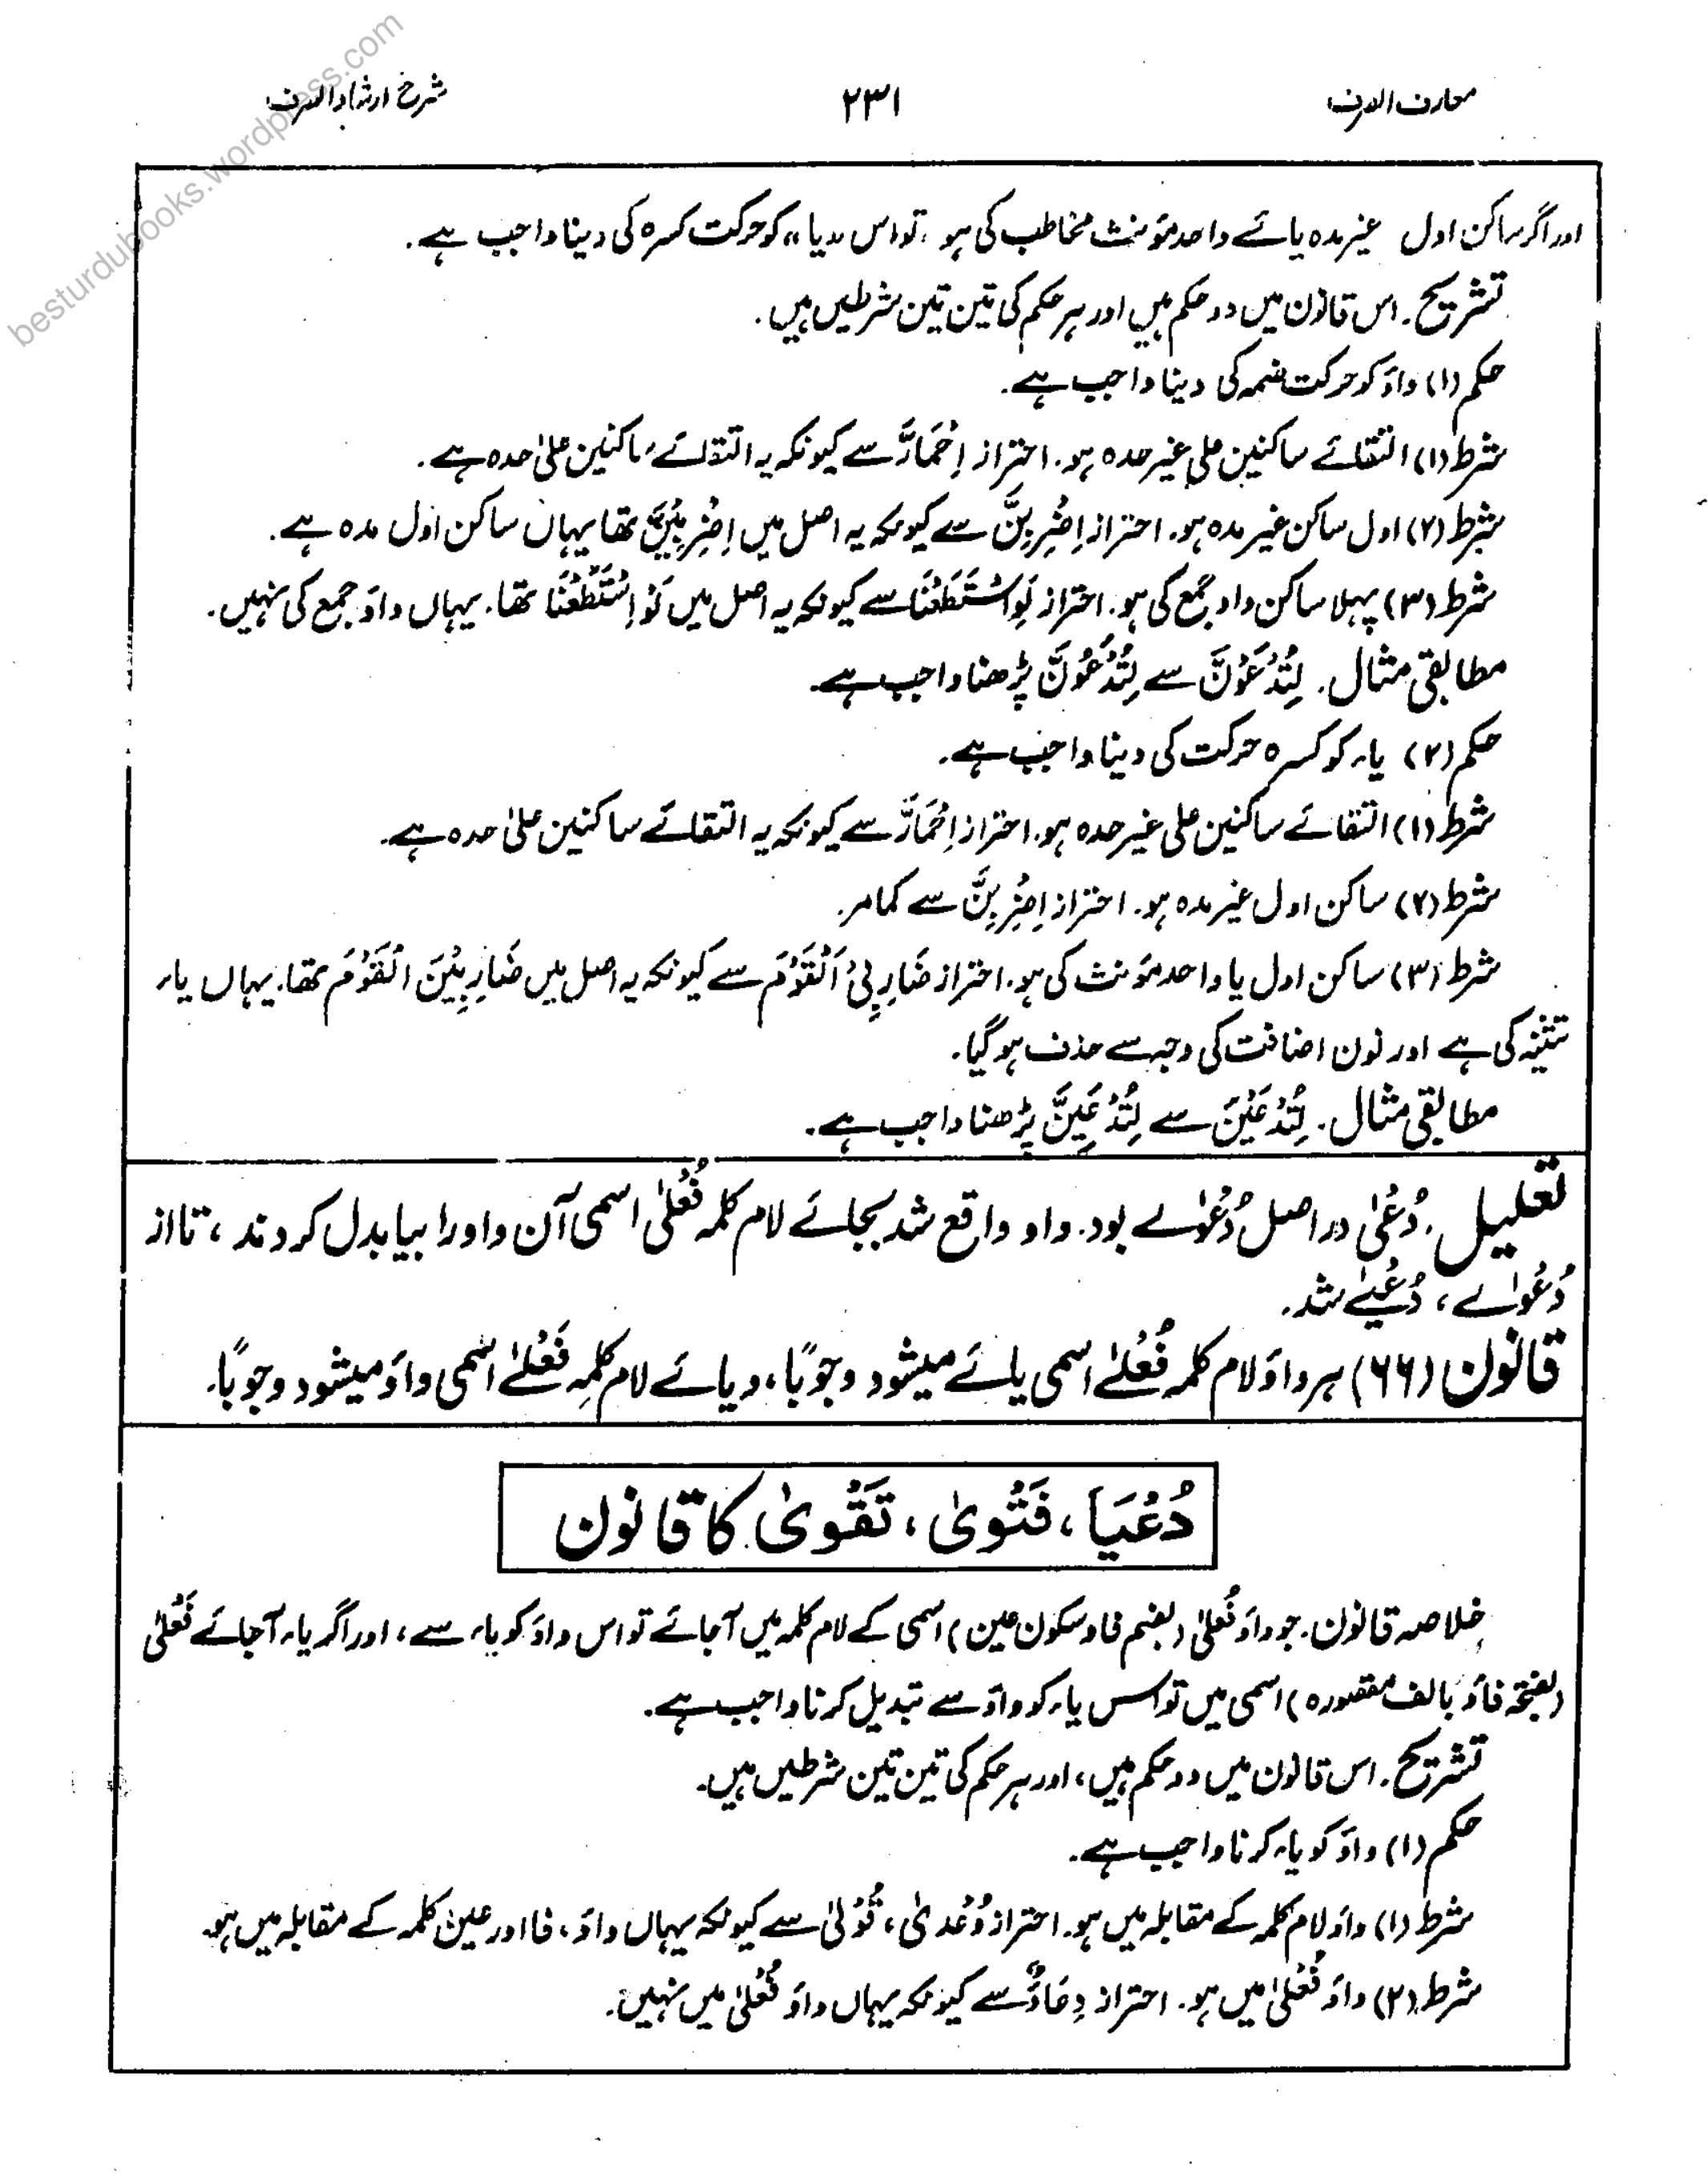 معارف الصرف
۲۳۱
شرح ارشاد الصرف
besturdubooks.wordpress.com
اور اگر ساکن اول غیر مدہ یائے واحد مؤنث مخاطب کی ہو، تو اس "یا" کو حرکت کسرہ کی دینا واجب ہے۔
تشریح۔ اس قانون میں دو حکم ہیں اور ہر حکم کی تین تین شرطیں ہیں۔
حکم (۱) واؤ کو حرکت ضمہ کی دینا واجب ہے۔
شرط (۱) التقائے ساکنین علی غیر حدہ ہو۔ احتراز اِحْمَارَّ سے کیونکہ یہ التقائے ساکنین علیٰ حدہ ہے۔
شرط (۲) اول ساکن غیر مدہ ہو۔ احتراز اِضْرِبِنَّ سے کیونکہ یہ اصل میں اِضْرِبِيْنَّ تھا یہاں ساکن اول مدہ ہے۔
شرط (۳) پہلا ساکن واو جمع کی ہو۔ احتراز لَوِاسْتَطَعْنَا سے کیونکہ یہ اصل میں لَوْ اِسْتَطَعْنَا تھا۔ یہاں واؤ جمع کی نہیں۔
مطابقی مثال۔ لِتُدْعَوْنَّ سے لِتُدْعَوُنَّ پڑھنا واجب ہے۔
حکم (۲) یاء کو کسرہ حرکت کی دینا واجب ہے۔
شرط (۱) التقائے ساکنین علی غیر حدہ ہو۔ احتراز اِحْمَارَّ سے کیونکہ یہ التقائے ساکنین علیٰ حدہ ہے۔
شرط (۲) ساکن اول غیر مدہ ہو۔ احتراز اِضْرِبِنَّ سے کمامر۔
شرط (۳) ساکن اول یا واحد مؤنث کی ہو۔ احتراز ضَارِبِیْ اَلْقَوْمِ سے کیونکہ یہ اصل میں ضَارِبِيْنَ الْقَوْمَ تھا۔ یہاں یاء
تثنیہ کی ہے اور نون اضافت کی وجہ سے حذف ہو گیا۔
مطابقی مثال۔ لِتُدْعَيْنَ سے لِتُدْعَيِنَّ پڑھنا واجب ہے۔
تعلیل۔ دُعْیٰ در اصل دُعْوٰے بود۔ واو واقع شد بجائے لام کلمہ فُعْلیٰ اسمی آن واو را بیا بدل کردند، تا از
دُعْوٰے، دُعْیٰے شد۔
قانون (۶۶) ہر واؤ لام کلمہ فُعْلیٰ اسمی یائے میشود وجوبًا، ویائے لام کلمہ فَعْلیٰ اسمی واؤ میشود وجوبًا۔
دُعْیَا، فَتْویٰ، تَقْویٰ کا قانون
خلاصہ قانون۔ جو واؤ فُعْلیٰ (بضم فا وسکون عین) اسمی کے لام کلمہ میں آجائے تو اس واؤ کو یاء سے، اور اگر یاء آجائے فَعْلیٰ
(بفتحہ فاؤ بالف مقصورہ) اسمی میں تو اس یاء کو واؤ سے تبدیل کرنا واجب ہے۔
تشریح۔ اس قانون میں دو حکم ہیں، اور ہر حکم کی تین تین شرطیں ہیں۔
حکم (۱) واؤ کو یاء کرنا واجب ہے۔
شرط (۱) واؤ لام کلمہ کے مقابلہ میں ہو۔ احتراز وُعْدیٰ، قُوْلیٰ سے کیونکہ یہاں واؤ، فا اور عین کلمہ کے مقابلہ میں ہو۔
شرط (۲) واؤ فُعْلیٰ میں ہو۔ احتراز دِعَاوٌ سے کیونکہ یہاں واؤ فُعْلیٰ میں نہیں۔